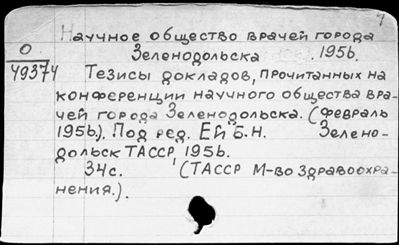 7
Научное общество врачей города
О
49374
Зеленодольска 1956.
Тезисы докладов, прочитанных на
конференции научного общества вра-
чей города Зеленодольска. (февраль
1956). Под ред. Ей Б.Н. Зелено-
дольск ТАССР, 1956.
34с. (ТАССР М-во здравоохра-
нения.).